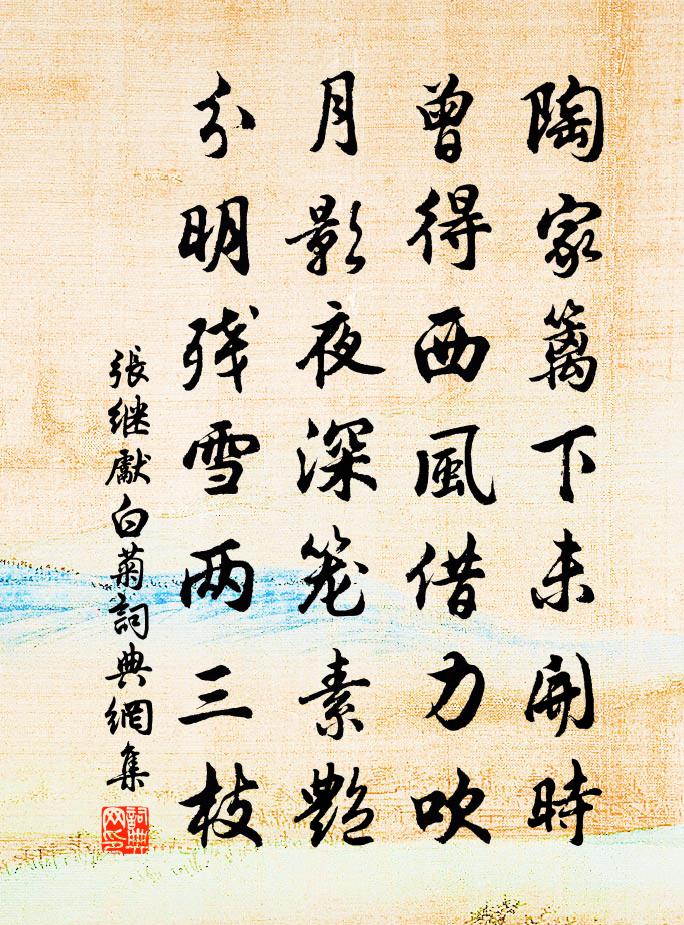 陶家篱下未開時
曾得西風借力吹
月影夜深笼素艷
分明残雪两三枝
張继獻白菊詞典網集
詞典网印